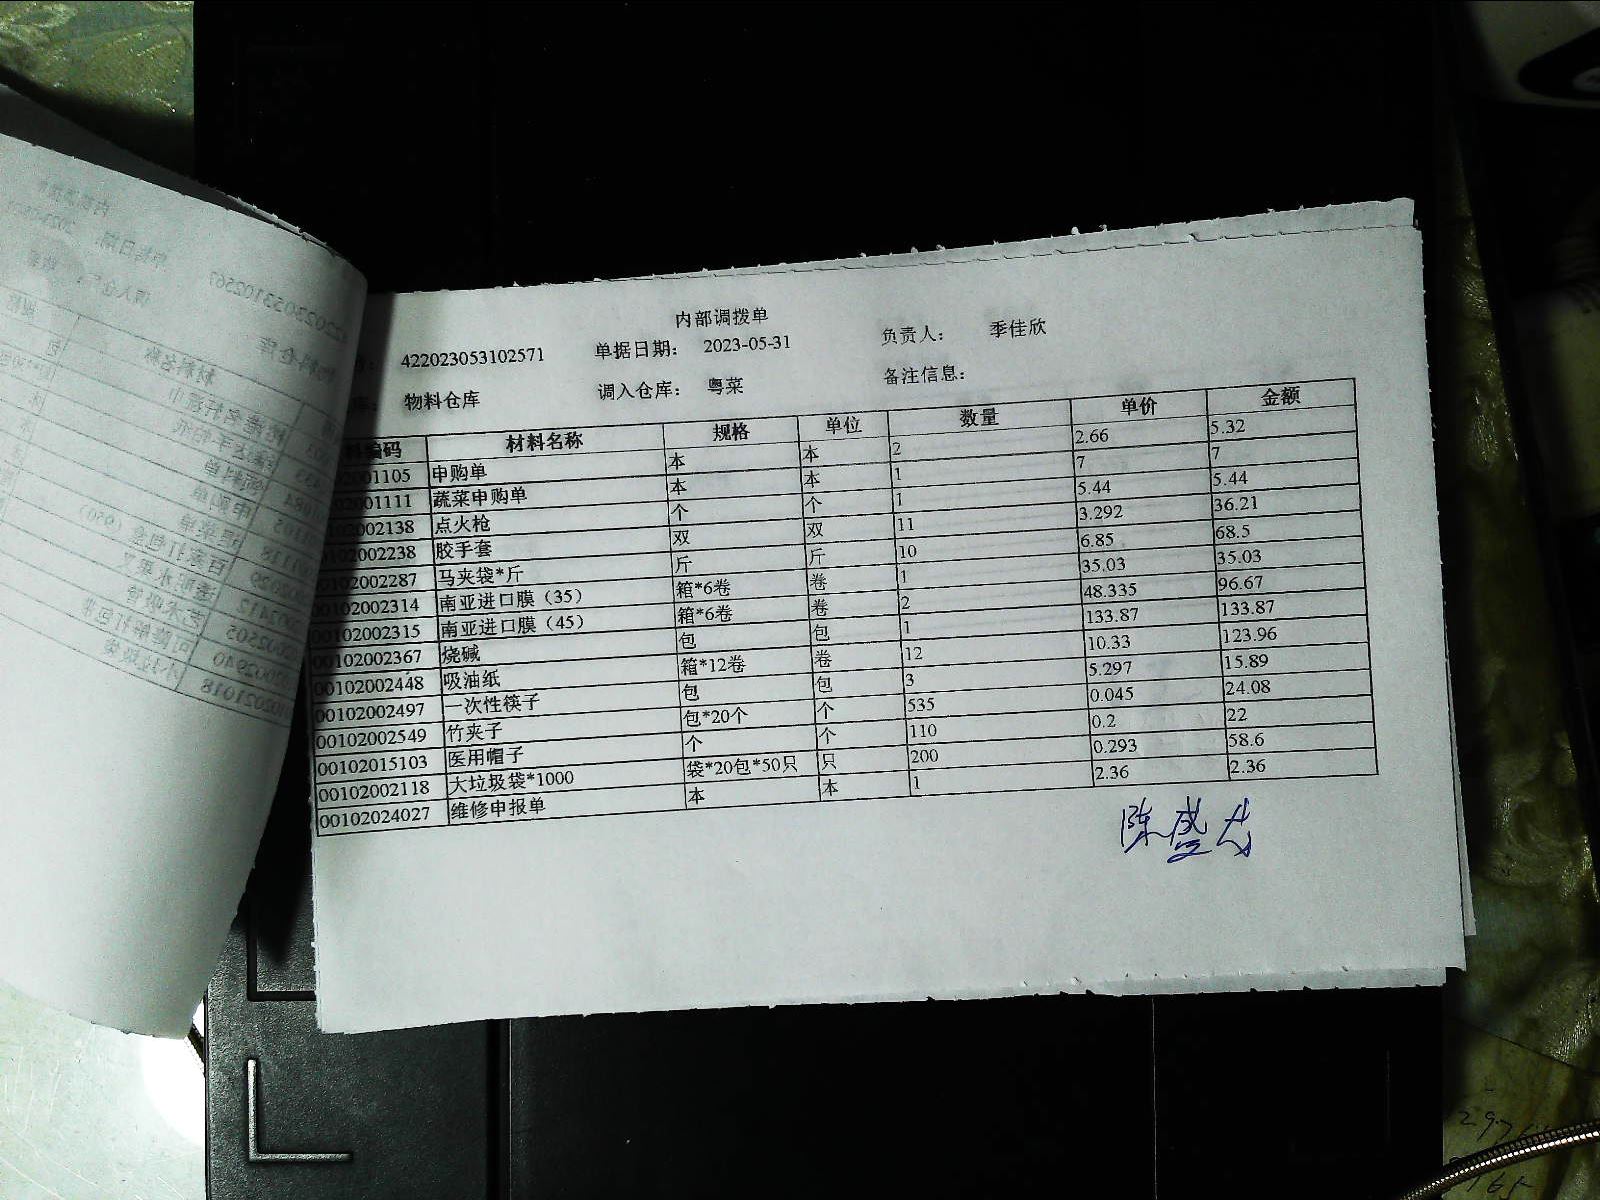 内部调拨单
422023053102571 单据日期: 2023-05-31 负责人: 季佳欣
物料仓库 调入仓库: 粤菜 备注信息:
编码 材料名称 规格 单位 数量 单价 金额
02001105 申购单 本 本 2 2.66 5.32
02001111 蔬菜申购单 本 本 1 7 7
0102002138 点火枪 个 个 1 5.44 5.44
0102002238 胶手套 双 双 11 3.292 36.21
00102002287 马夹袋*斤 斤 斤 10 6.85 68.5
00102002314 南亚进口膜（35） 箱*6卷 卷 1 35.03 35.03
00102002315 南亚进口膜（45） 箱*6卷 卷 2 48.335 96.67
00102002367 烧碱 包 包 1 133.87 133.87
00102002448 吸油纸 箱*12卷 卷 12 10.33 123.96
00102002497 一次性筷子 包 包 3 5.297 15.89
00102002549 竹夹子 包*20个 个 535 0.045 24.08
00102015103 医用帽子 个 个 110 0.2 22
00102002118 大垃圾袋*1000 袋*20包*50只 只 200 0.293 58.6
00102024027 维修申报单 本 本 1 2.36 2.36